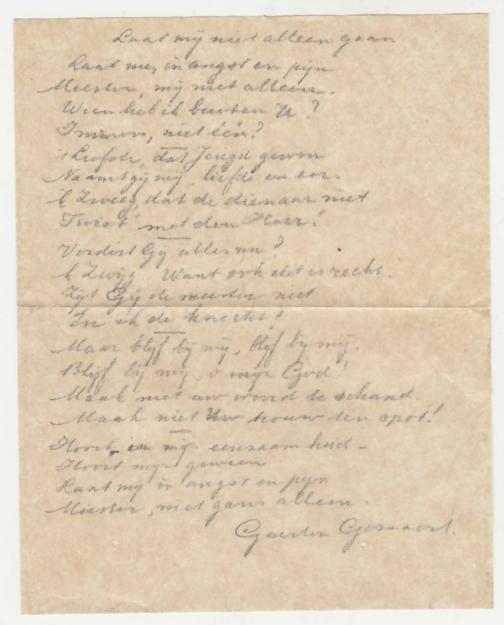 Laat mij niet alleen gaan
Laat me, in angst en pijn
Meester, mij niet alleen.
Wien heb ik buiten U?
Immers, niet één?
't Liefste, dat Jeugd gewon
Naamt gij mij, liefde en eer.
'k Zweeg, dat de dienaar niet
Twist' met den Heer!
Vordert Gij alles nu?
'k Zwijg Want ook dit is recht.
Zijt Gij de meester niet
En ik de knecht?
Maar blijf bij mij, blijf bij mij.
Blijf bij mij, o mijn God!
Maak niet uw woord te schand.
Maak niet Uw trouw ten spot!
Hoort, in mijn eenzaamheid -
Hoort mijn geween
Laat mij in angst en pijn
Meester, niet gans alleen.
Geerten Gossaert.